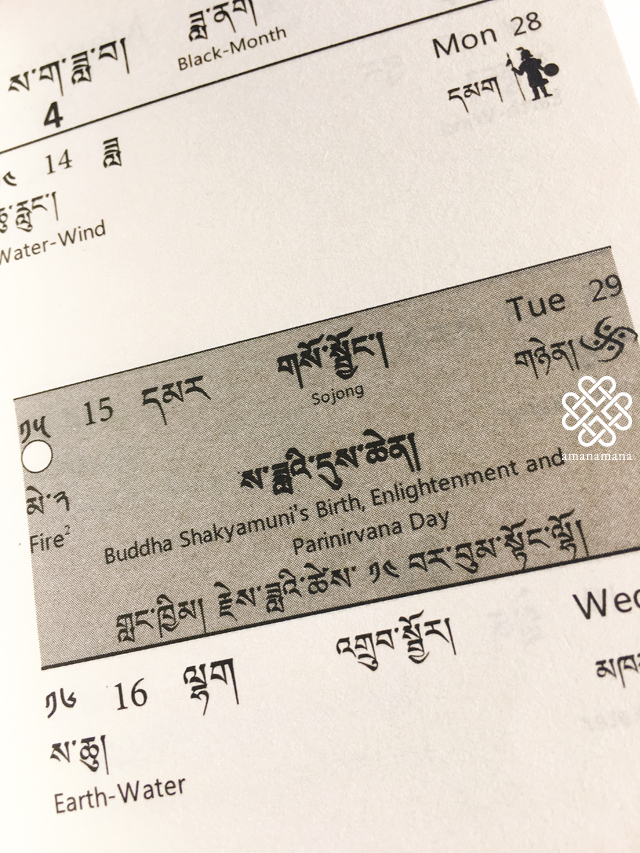 ས་ག་ཟླ་བ།
4
ཟླ་ནག
Black-Month
Mon 28
དམག
14 ཟླ
Water-Wind
Tue 29
གཉེན།
༡༥ 15 དམར
གསོ་སྦྱོང་།
Sojong
མེ་༢
Fire²
ས་ཟླའི་དུས་ཆེན།
Buddha Shakyamuni's Birth, Enlightenment and
Parinirvana Day
གླང་ཁྲིམ། རྗེས་ཟླའི་ཚེས་ ༡༩ བར་བུམ་སྟོང་ལྷོ།
amanamana
༡༦ 16 ལྷག
འགྲུབ་སྦྱོར།
Wed
ས་ཆུ།
Earth-Water